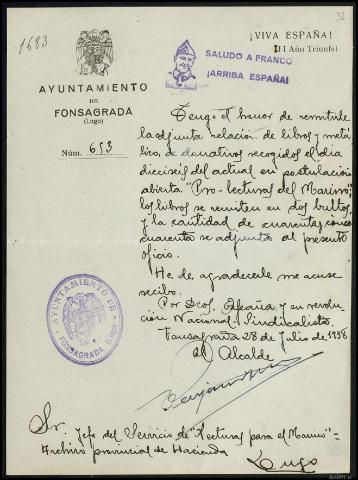 1683
32
¡VIVA ESPAÑA!
III Año Triunfal
SALUDO A FRANCO
¡ARRIBA ESPAÑA!
AYUNTAMIENTO
DE
FONSAGRADA
(Lugo)
Núm. 653
Tengo el honor de remitirle
la adjunta relación de libros y metá-
lico, de donativos recogidos el día
dieciseis del actual en postulación
abierta "Pro-lecturas del Marino";
los libros se remiten en dos bultos,
y la cantidad de cuarenta y cinco
cuarenta se adjunta al presente
oficio.
He de agradecerle me acuse
recibo.
Por Dios, España y su revolu-
ción Nacional Sindicalista.
Fonsagrada 28 de Julio de 1938
El Alcalde
AYUNTAMIENTO DE
FONSAGRADA (Lugo)
Sr. Jefe del Servicio de "Lecturas para el Marino"-
Archivo provincial de Hacienda
Lugo